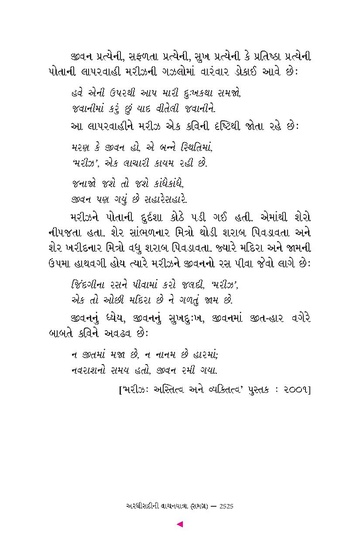 જીવન પ્રત્યેની, સફળતા પ્રત્યેની, સુખ પ્રત્યેની કે પ્રતિષ્ઠા પ્રત્યેની
પોતાની લાપરવાહી મરીઝની ગઝલોમાં વારંવાર ડોકાઈ આવે છેઃ
હવે એની ઉપરથી આપ મારી દુઃખકથા સમજો,
જવાનીમાં કરું છું યાદ વીતેલી જવાનીને.
આ લાપરવાહીને મરીઝ એક કવિની દૃષ્ટિથી જોતા રહે છેઃ
મરણ કે જીવન હો, એ બન્ને સ્થિતિમાં,
'મરીઝ', એક લાચારી કાયમ રહી છે.
જનાજો જશે તો જશે કાંધેકાંધે,
જીવન પણ ગયું છે સહારેસહારે.
મરીઝને પોતાની દુર્દશા કોઠે પડી ગઈ હતી. એમાંથી શેરો
નીપજતા હતા. શેર સાંભળનાર મિત્રો થોડી શરાબ પિવડાવતા અને
શેર ખરીદનાર મિત્રો વધુ શરાબ પિવડાવતા. જ્યારે મદિરા અને જામની
ઉપમા હાથવગી હોય ત્યારે મરીઝને જીવનનો રસ પીવા જેવો લાગે છેઃ
જિંદગીના રસને પીવામાં કરો જલદી, 'મરીઝ',
એક તો ઓછી મદિરા છે ને ગળતું જામ છે.
જીવનનું ધ્યેય, જીવનનું સુખદુઃખ, જીવનમાં જીત-હાર વગેરે
બાબતે કવિને અવઢવ છેઃ
ન જીતમાં મજા છે, ન નાનમ છે હારમાં;
નવરાશનો સમય હતો, જીવન રમી ગયા.
['મરીઝઃ અસ્તિત્વ અને વ્યક્તિત્વ' પુસ્તક : ૨૦૦૧]
અરધીસદીની વાચનયાત્રા (સમગ્ર) — 2525